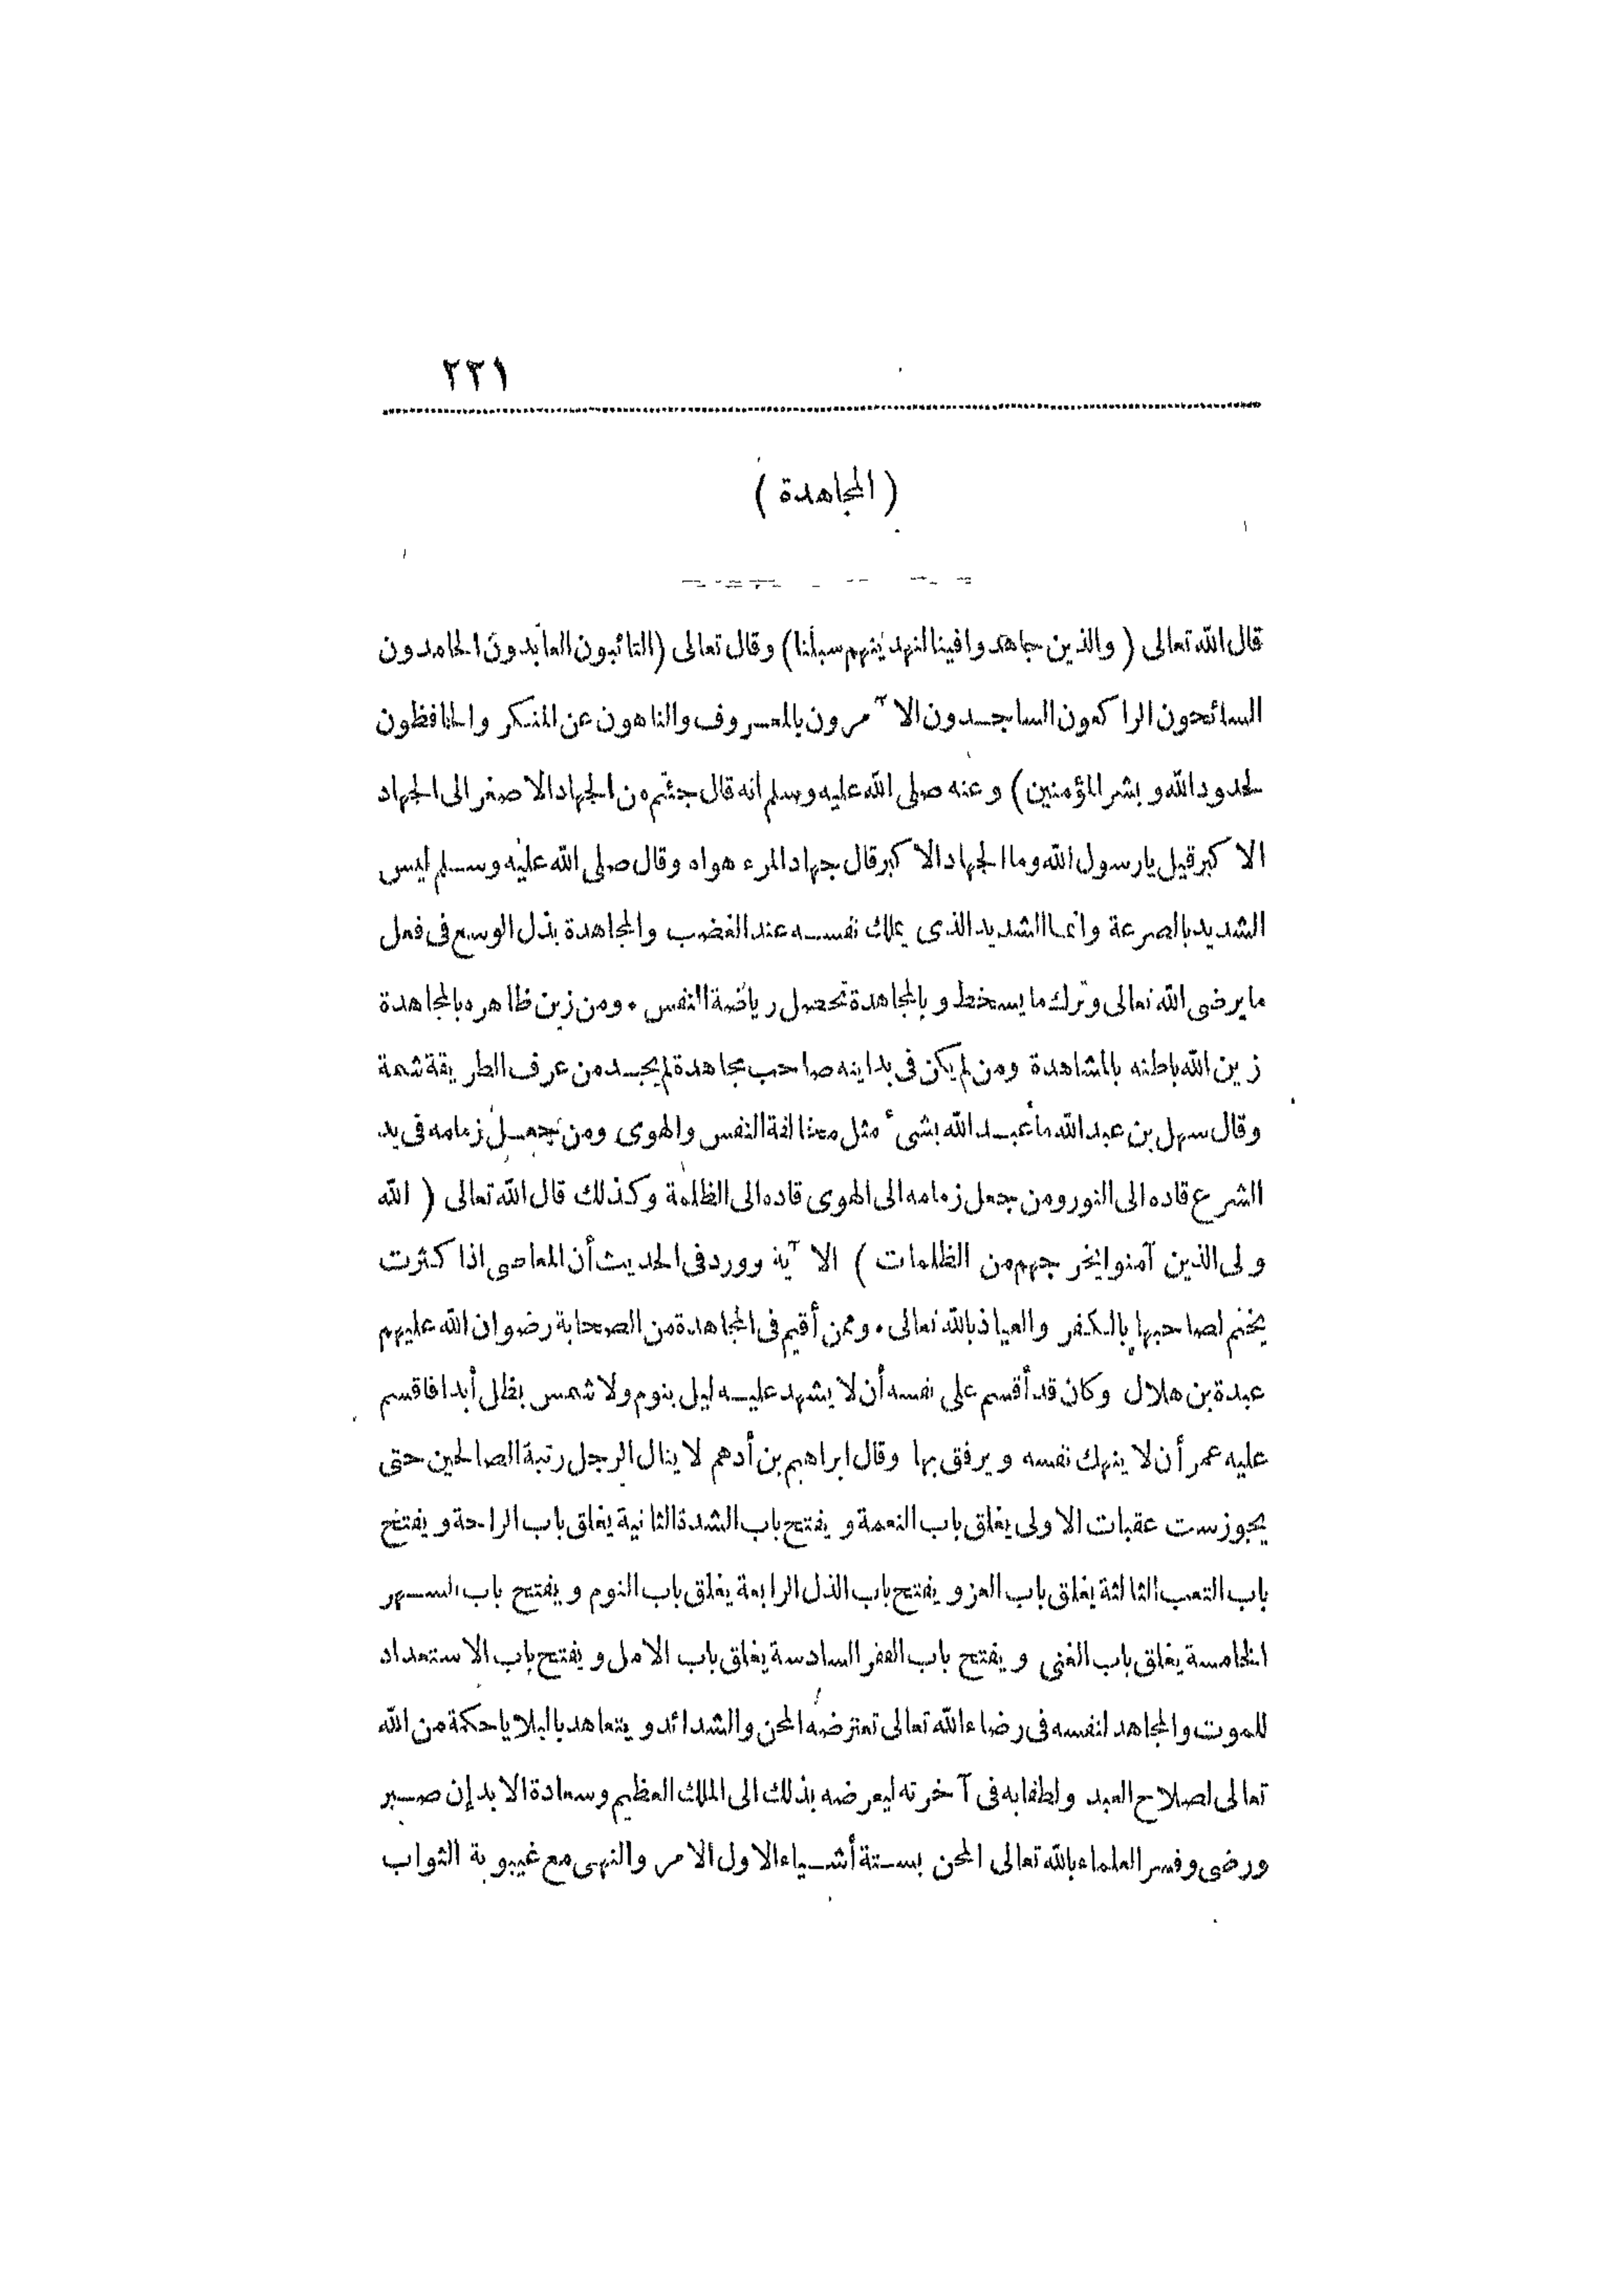 ٢٣١
( المجاهدة )
قال الله تعالى ( والذين جاهدوا فينا لنهدينهم سبلنا ) وقال تعالى ( التائبون العابدون الحامدون
السائحون الراكعون الساجدون الآمرون بالمعروف والناهون عن المنكر والحافظون
لحدود الله وبشر المؤمنين ) وعنه صلى الله عليه وسلم انه قال جئتم من الجهاد الاصغر الى الجهاد
الاكبر قيل يا رسول الله وما الجهاد الاكبر قال جهاد المرء هواه وقال صلى الله عليه وسلم ليس
الشديد بالصرعة وانما الشديد الذى يملك نفسه عند الغضب والمجاهدة بذل الوسع فى فعل
ما يرضى الله تعالى وترك ما يسخط وبالمجاهدة تحصل رياضة النفس ٠ ومن زين ظاهره بالمجاهدة
زين الله باطنه بالمشاهدة ومن لم يكن فى بدايته صاحب مجاهدة لم يجد من عرف الطريقة شمة
وقال سهل بن عبد الله ما عبد الله بشىء مثل مخالفة النفس والهوى ومن جعل زمامه فى يد
الشرع قاده الى النور ومن جعل زمامه الى الهوى قاده الى الظلمة وكذلك قال الله تعالى ( الله
ولى الذين آمنوا يخرجهم من الظلمات ) الآية وورد فى الحديث أن المعاصى اذا كثرت
يختم لصاحبها بالكفر والعياذ بالله تعالى ٠ وممن أقيم فى المجاهدة من الصحابة رضوان الله عليهم
عبدة بن هلال وكان قد أقسم على نفسه أن لا يشهد عليه ليل بنوم ولا شمس بظل أبدا فاقسم
عليه عمر أن لا ينهك نفسه ويرفق بها وقال ابراهيم بن أدهم لا ينال الرجل رتبة الصالحين حتى
يجوز ست عقبات الاولى يغلق باب النعمة ويفتح باب الشدة الثانية يغلق باب الراحة ويفتح
باب التعب الثالثة يغلق باب العز ويفتح باب الذل الرابعة يغلق باب النوم ويفتح باب السهر
الخامسة يغلق باب الغنى ويفتح باب الفقر السادسة يغلق باب الامل ويفتح باب الاستعداد
للموت والمجاهد لنفسه فى رضاء الله تعالى تعترضه المحن والشدائد ويتعاهد بالبلايا حكمة من الله
تعالى لصلاح العبد ولطفا به فى آخرته ليعرضه بذلك الى الملك العظيم وسعادة الابد إن صبر
ورضى وفسر العلماء بالله تعالى المحن بستة أشياء الاول الامر والنهى مع غيبوبة الثواب